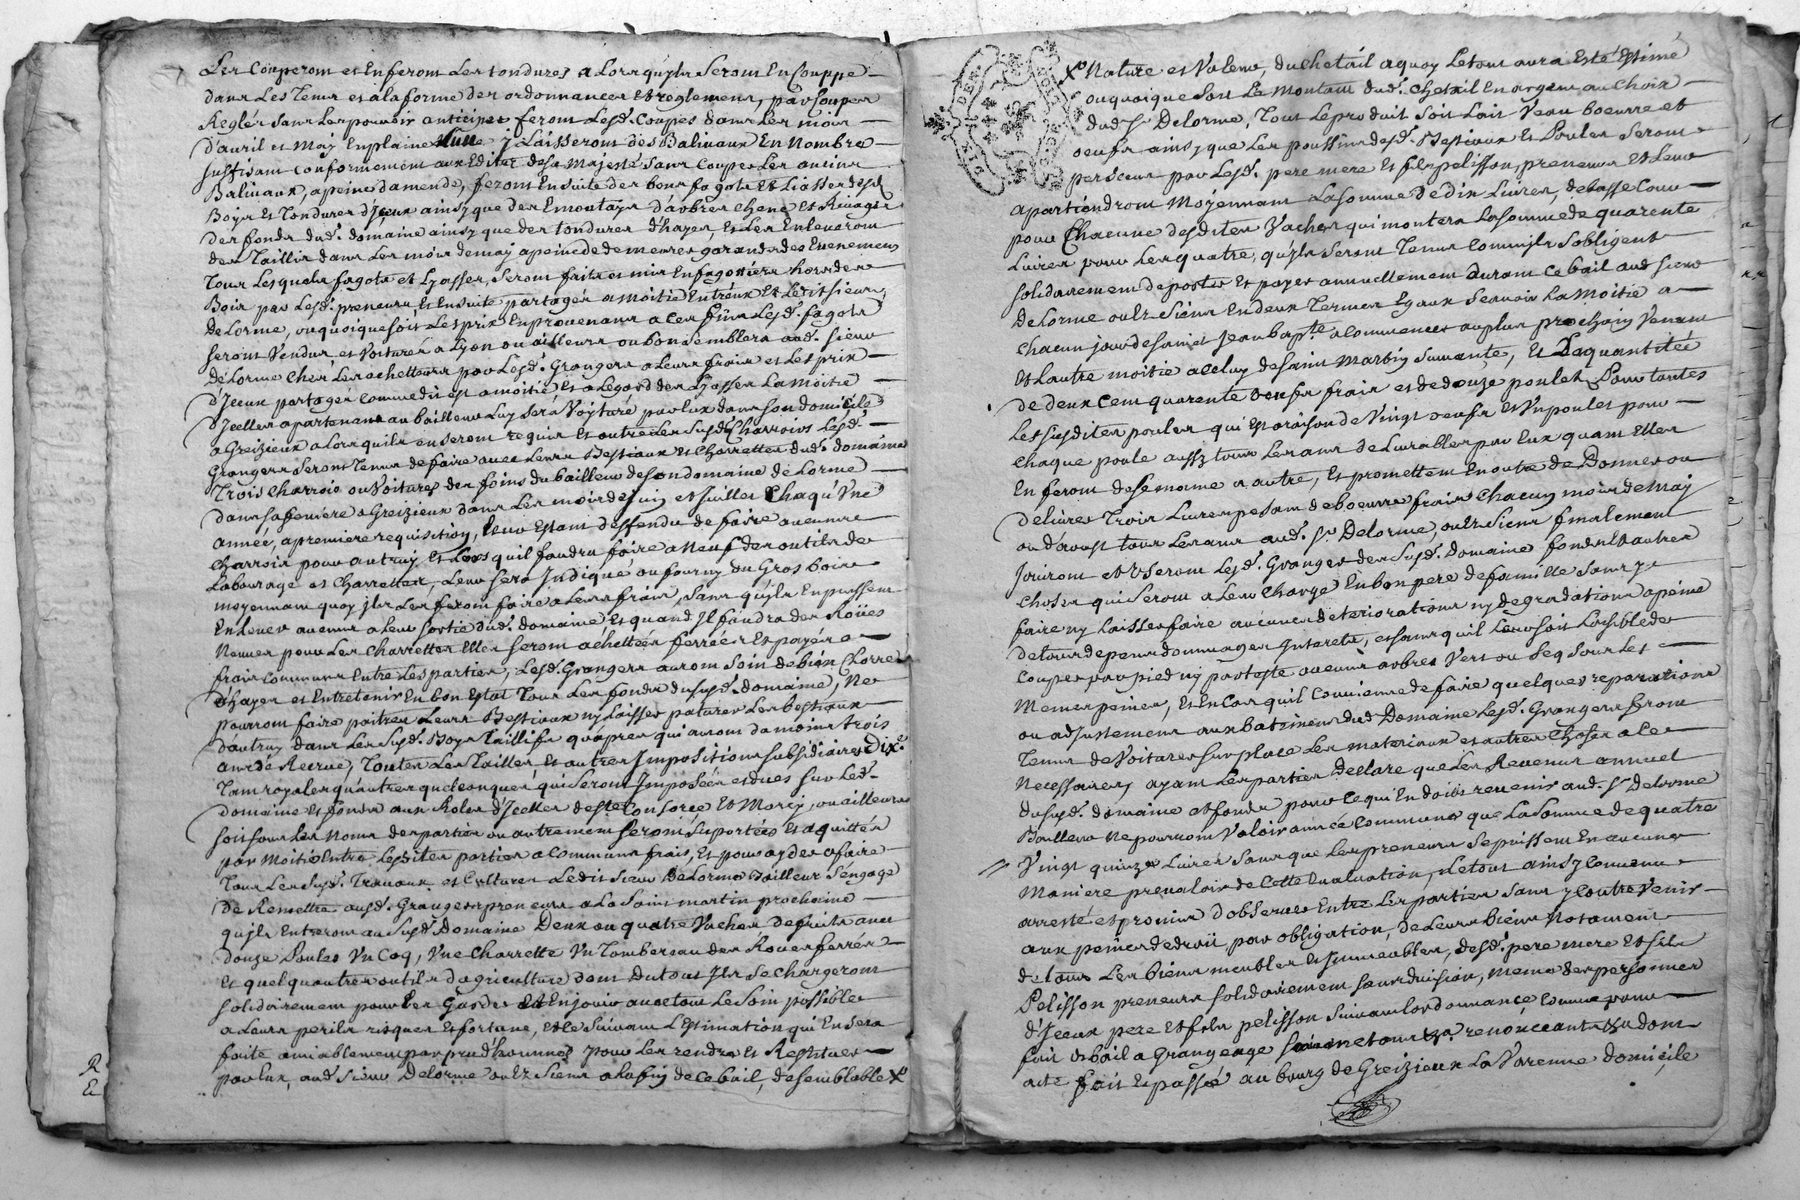 Les Couperont et Enferont Les tondures a Lorsqu'yls Seront En Couppe
dans Les Tems et a la forme des ordonnances et reglemens, par Coupes
Reglés sans Les pouvoir anticiper feront Lesd. Coupes dans Les mois
d'avril et May En plaine Lune y Laisseront des Balivaux En Nombre
suffisant conformement aux Edites de sa Majesté sans Couper Les anciens
Balivaux, a peine d'amende, feront En suite des bons fagots Et Liasses desd.
Boys Et Tondures d'Jceux ainsy que des Emontayes d'arbres chene Et Rivages
des fonds dud. domaine ainsy que des tondures d'hayes, Et Les Enleveront
des Taillis dans Les mois de may a peine de demeures garands des Evenemens
Tous Lesquels fagots et Lyasses, Seront faits et mis En fagottiers hors des
Bois par Lesd. preneurs, Et En suite partages a moitié Entreux Et Ledit sieur
de Lorme, ou quoique soit Les prix En provenans a ces fins Lesd. fagots
seront Vendus et Voiturés a Lyon ou ailleurs ou bon semblera aud. sieur
de Lorme Chés Les achetteurs par Lesd. Grangers a Leurs frais et Les prix
d'Jceux partages comme dit est a moitié, Et a Legard des Lyasses La Moitié
d'Jcelles apartenans au bailleur Luy sera Voituré par Eux dans son domicile
a Greizieux a Lorsquils en seront requis Et outre Les susd. Charrois Lesd.
Grangers seront Tenus de faire avec Leurs Bestiaux et Charrettes dud. domaine
Trois Charrois ou Voitures des foins du bailleur de son domaine de Lorme
dans sa feniere a Greizieux dans Les mois de juin et Juillet Chaqu'Une
année, a premiere requisition, Leur Estant deffendu de faire aucuns
charrois pour autruy, Et Lors quil faudra faire a Neuf des outils de
Labourage et Charrettes, Leur sera Jndiqué ou fourny du Gros boire
moyennant quoy jls Les feront faire a Leurs frais, sans qu'yls En puissent
Enlever aucuns a Leur sortie dud. domaine Et quand Jl faudra des Roües
Neuves pour Les Charrettes Elles seront achettées ferrées Et payés a
frais Communs Entre Les parties, Lesd. Grangers auront Soin de bien Clorre
d'hayes et Entretenir En bon Estat Tous Les fonds dususd. domaine, Ne
pourront faire paitrer Leurs Bestiaux ny Laisser paturer Les bestiaux
d'autruy dans Les susd. Boys Taillifs qu'apres qui auront du moins trois
ans de Recrue, Toutes Les Tailles Et autres Jmpositions subsidiaires Dix.e
Tant royales qu'autres quelconques qui seront Jmposées et dues sur Led.
domaine Et fonds aux Roles d'Jcelles de Ste Consorce Et Marcy, ou ailleurs
soit sous Les Noms des parties ou autrement seront suportées Et aquittés
par moitié Entre Lesdites parties a Communs frais, Et pour ayder a faire
Tous Les susd. Travaux et Cultures Ledit sieur De Lorme Bailleur s'engage
de Remettre ausd. Grangers preneurs a La Saint martin prochaine
qu'jls Entreront au susd. Domaine Deux ou quatre Vaches de fruits avec
douze Poules Un Coq, Une Charrette Un Tombereau des Roues ferrées
et quelqu'autres outils d'agriculture dont du tout Jls se Chargeront
solidairement pour Les Garder Et En Jouir avec tout Le Soin possible
a Leurs perils risques Et fortune, Et Le suivant L'Estimation qui En sera
faite amiablement par prud'hommes pour Les rendre Et Restituer
par Eux, aud. Sieur Delorme ou Ez Siens a La fin de Ce bail, de semblable X
X Nature et Valeur, du Chetail a quoy Le tout aura Esté Estimé
ou quoique Soit Le montant dud. Chetail En argent au Choix
dud. Sr Delorme, Tout Le produit soit Lait Veau boeurre et
oeufs ainsy que Les poussins desd. Bestiaux Et Poules seront
perceus par Lesd. pere mere Et fils pelisson, preneurs Et Leur
apartiendront Moyennant La somme de dix Livres, de basse Cour
pour Chacune desdites Vaches qui montera La somme de quarente
Livres pour Les quatre, qu'yls seront Tenus Comm'jls s'obligent
solidairement de porter Et payer annuellement durant Ce bail aud. sieur
de Lorme ou Ez Siens En deux Termes Egaux Scavoir La Moitié a
Chacun jour de saint Jean bapte. a Commencer au plus prochain Venant
Et Lautre moitié a Celuy de Saint Martin suivante, Et La quantitée
de deux Cent quarente Oeufs frais et de douze poulets Pour toutes
Les susdites poules qui Est a raison de Vingt oeufs et Un poulet pour
Chaque poule aussy tous Les ans de Livrables par Eux quant Elles
En feront de semaine a autre, Et promettent En outre de Donner ou
delivrer Trois Livres pesant de boeurre frais Chacun mois de May
ou d'aoust tous Les ans aud. Sr Delorme, ou Ez Siens finalement
Jouiront et Useront Lesd. Grangers des susd. domaine fonds Et autres
Choses qui seront a Leur Charge En bon pere de famille sans y
faire ny Laisser faire aucunes deteriorations ny degradations a peine
de tous depens dommages Interets, et sans quil Leur soit Loysible de
Couper par pied ny par teste aucuns arbres Vers ou Secq Sous Les
Memes peines, Et En Cas qu'il Convienne de faire quelques reparations
ou adjustement aux batiments dud. Domaine Lesd. Grangers seront
Tenus de Voiturer sur place Les materiaux et autres Choses a Ce
Necessaires, ayant Les parties Declaré que Les Revenus annuel
du susd. domaine et fonds pour Ce qui En doibt revenir aud. Sr Delorme
Bailleur Ne pourront Valoir année Commune que La Somme de quatre
Vingt quinze Livres sans que Les preneurs Se puissent En aucune
Maniere prevaloir de Cette Evaluation, Le tout ainsy Convenu
arresté et promis d'observer Entre Les parties sans y Contrevenir
aux peines de droit, par obligation, de Leurs biens Notament
de tous Les biens meubles Et Jmmeubles, desd. pere mere Et fils
Pelisson preneurs solidairement sans division, meme des personnes
d'Jceux pere Et fils pelisson suivant Lordonnance Comme pour
fait de bail a Grangeage renonceants &a dont
acte fait Et passé au bourg de Greizieux La Varenne domicile